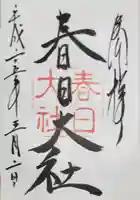 奉拝
春日大社
春日
大社
平成二十五年三月二日